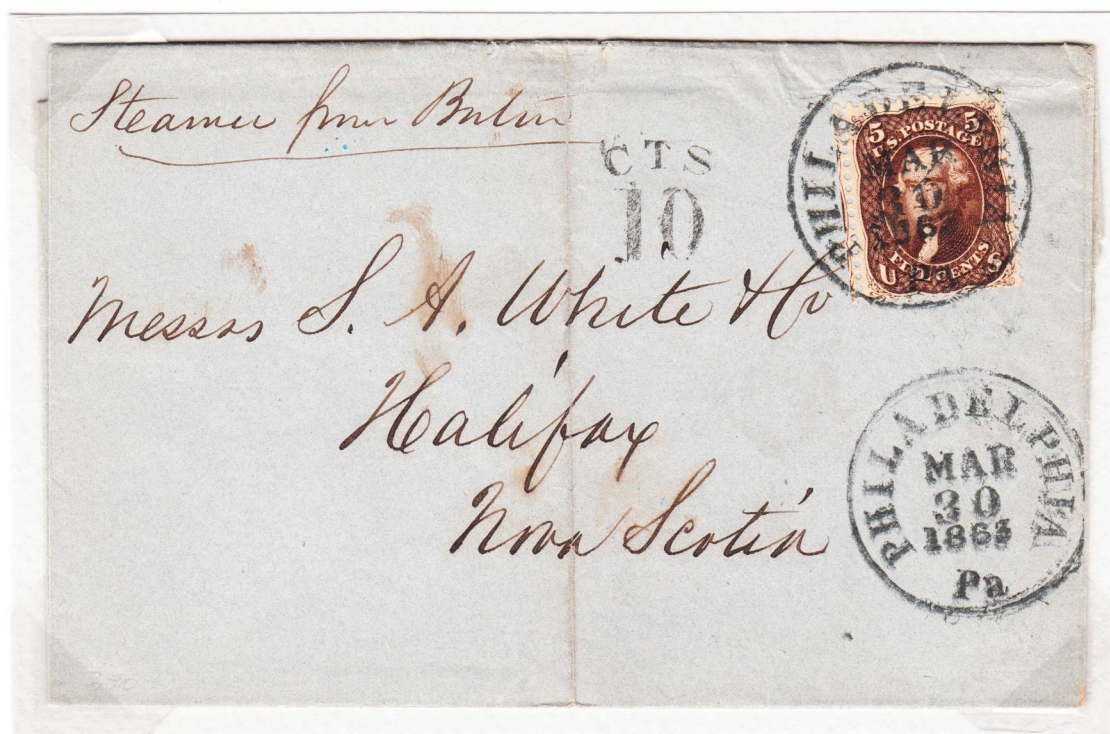 Steamer from Boston
CTS
10
5 5
U.S. POSTAGE
FIVE CENTS
U S
PHILADELPHIA
MAR
30
1863
Pa
Messrs S. A. White & Co
Halifax
Nova Scotia
PHILADELPHIA
MAR
30
1863
Pa